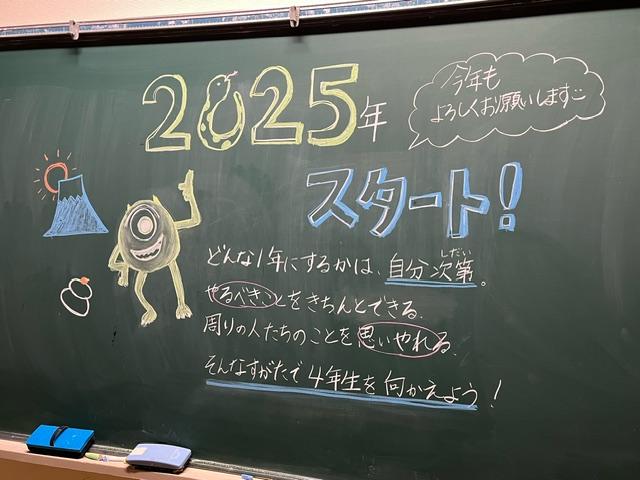 2025年
今年も
よろしくお願いします
スタート!
どんな1年にするかは、自分次第。
しだい
やるべきことをきちんとできる。
周りの人たちのことを思いやれる。
そんなすがたで4年生を向かえよう!